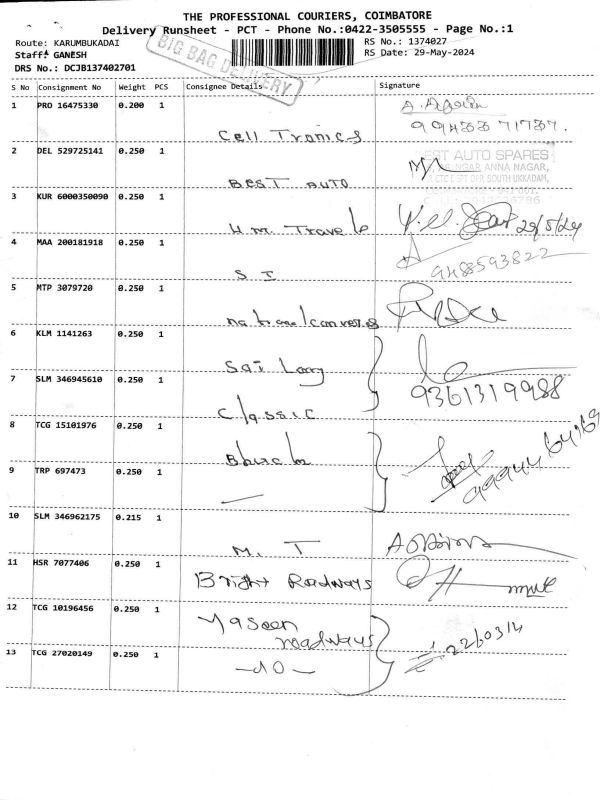 THE PROFESSIONAL COURIERS, COIMBATORE
Delivery Runsheet - PCT - Phone No.:0422-3505555 - Page No.:1
Route: KARUMBUKADAI
RS No.: 1374027
Staff: GANESH
RS Date: 29-May-2024
DRS No.: DCJB137402701
BIG BAG DELIVERY
S No Consignment No Weight PCS Consignee Details Signature
1 PRO 16475330 0.200 1
Cell Tronics
2 DEL 529725141 0.250 1
AUTO SPARES
ANNA NAGAR,
SOUTH UKKADAM,
BEST AUTO
3 KUR 6000350090 0.250 1
H.M. Travels
29/5/24
4 MAA 200181918 0.250 1
S I
9488593822
5 MTP 3079720 0.250 1
6 KLM 1141263 0.250 1
Sai
7 SLM 346945610 0.250 1
9361319988
Classic
8 TCG 15101976 0.250 1
9 TRP 697473 0.250 1
10 SLM 346962175 0.215 1
M. T
11 HSR 7077406 0.250 1
Bright Roadways
12 TCG 10196456 0.250 1
Yaseen
roadways
13 TCG 27020149 0.250 1